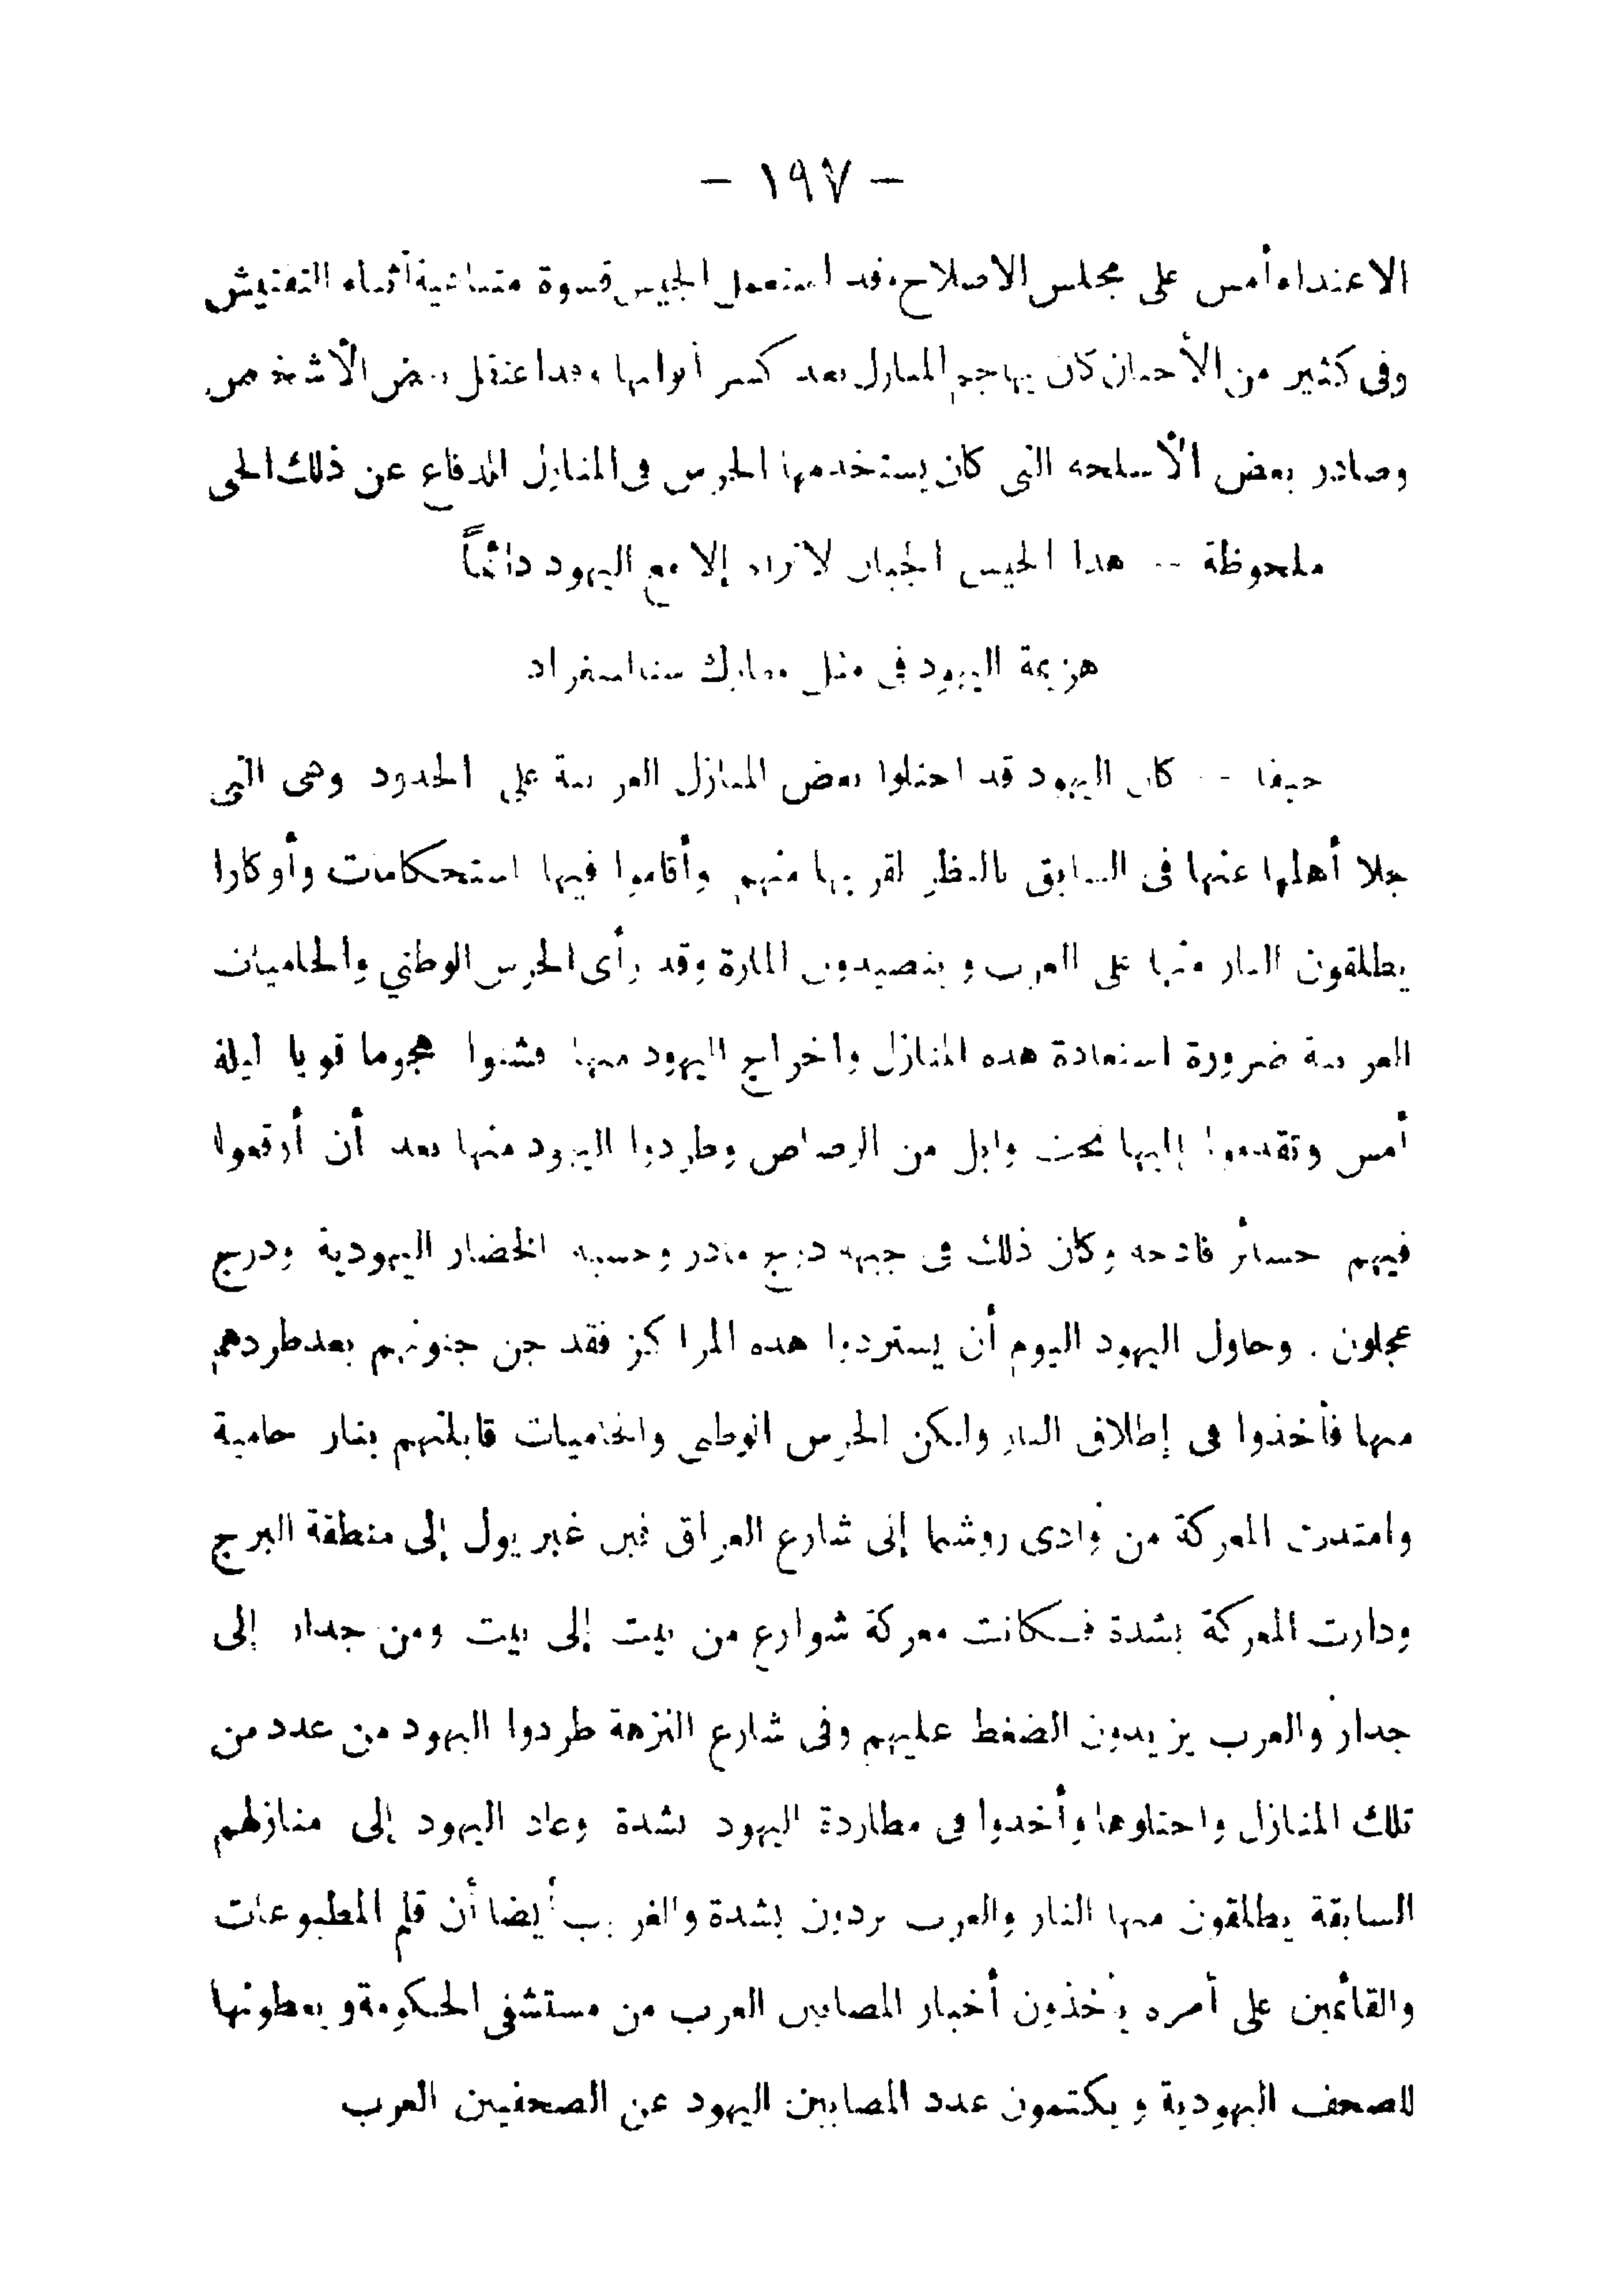 — ١٩٧ —
الاعتداء أمس على مجلس الاصلاح فقد استعمل الجيش قسوة متناهية أثناء التفتيش
وفى كثير من الأحيان كان يهاجم المنازل بعد كسر أبوابها وقد اعتقل بعض الأشخاص
وصادر بعض الأسلحه التى كان يستخدمها الحرس فى المنازل للدفاع عن ذلك الحى
ملحوظة -- هذا الجيش الجبار لا تراه إلا مع اليهود دائماً
هزيمة اليهود فى مثل معارك ستالنغراد
حيفا -- كان اليهود قد احتلوا بعض المنازل العربية على الحدود وهى التى
جلا أهلها عنها فى السابق بالنظر لقربها منهم وأقاموا فيها استحكامات وأوكارا
يطلقون النار منها على العرب ويتصيدون المارة وقد رأى الحرس الوطني والحاميات
العربية ضرورة استعادة هذه المنازل واخراج اليهود منها فشنوا هجوما قويا ليلة
أمس وتقدموا إليها تحت وابل من الرصاص وطردوا اليهود منها بعد أن أوقعوا
فيهم خسائر فادحه وكان ذلك فى جبهه درج مادر وحسبه الخضار اليهودية ودرج
عجلون . وحاول اليهود اليوم أن يستردوا هذه المراكز فقد جن جنونهم بعد طردهم
منها فأخذوا فى إطلاق النار ولكن الحرس الوطنى والحاميات قابلتهم بنار حامية
وامتدت المعركة من وادى روشميا إلى شارع العراق يول إلى منطقة البرج
ودارت المعركة بشدة فكانت معركة شوارع من بيت إلى بيت ومن جدار إلى
جدار والعرب يزيدون الضغط عليهم وفى شارع النزهة طردوا اليهود من عدد من
تلك المنازل واحتلوها وأخذوا فى مطاردة اليهود بشدة وعاد اليهود إلى منازلهم
السابقة يطلقون منها النار والعرب يردون بشدة والغريب أيضا أن قلم المطبوعات
والقائمين على أمره يأخذون أخبار المصابين العرب من مستشفى الحكومة ويعطونها
للصحف اليهودية ويكتمون عدد المصابين اليهود عن الصحفيين العرب